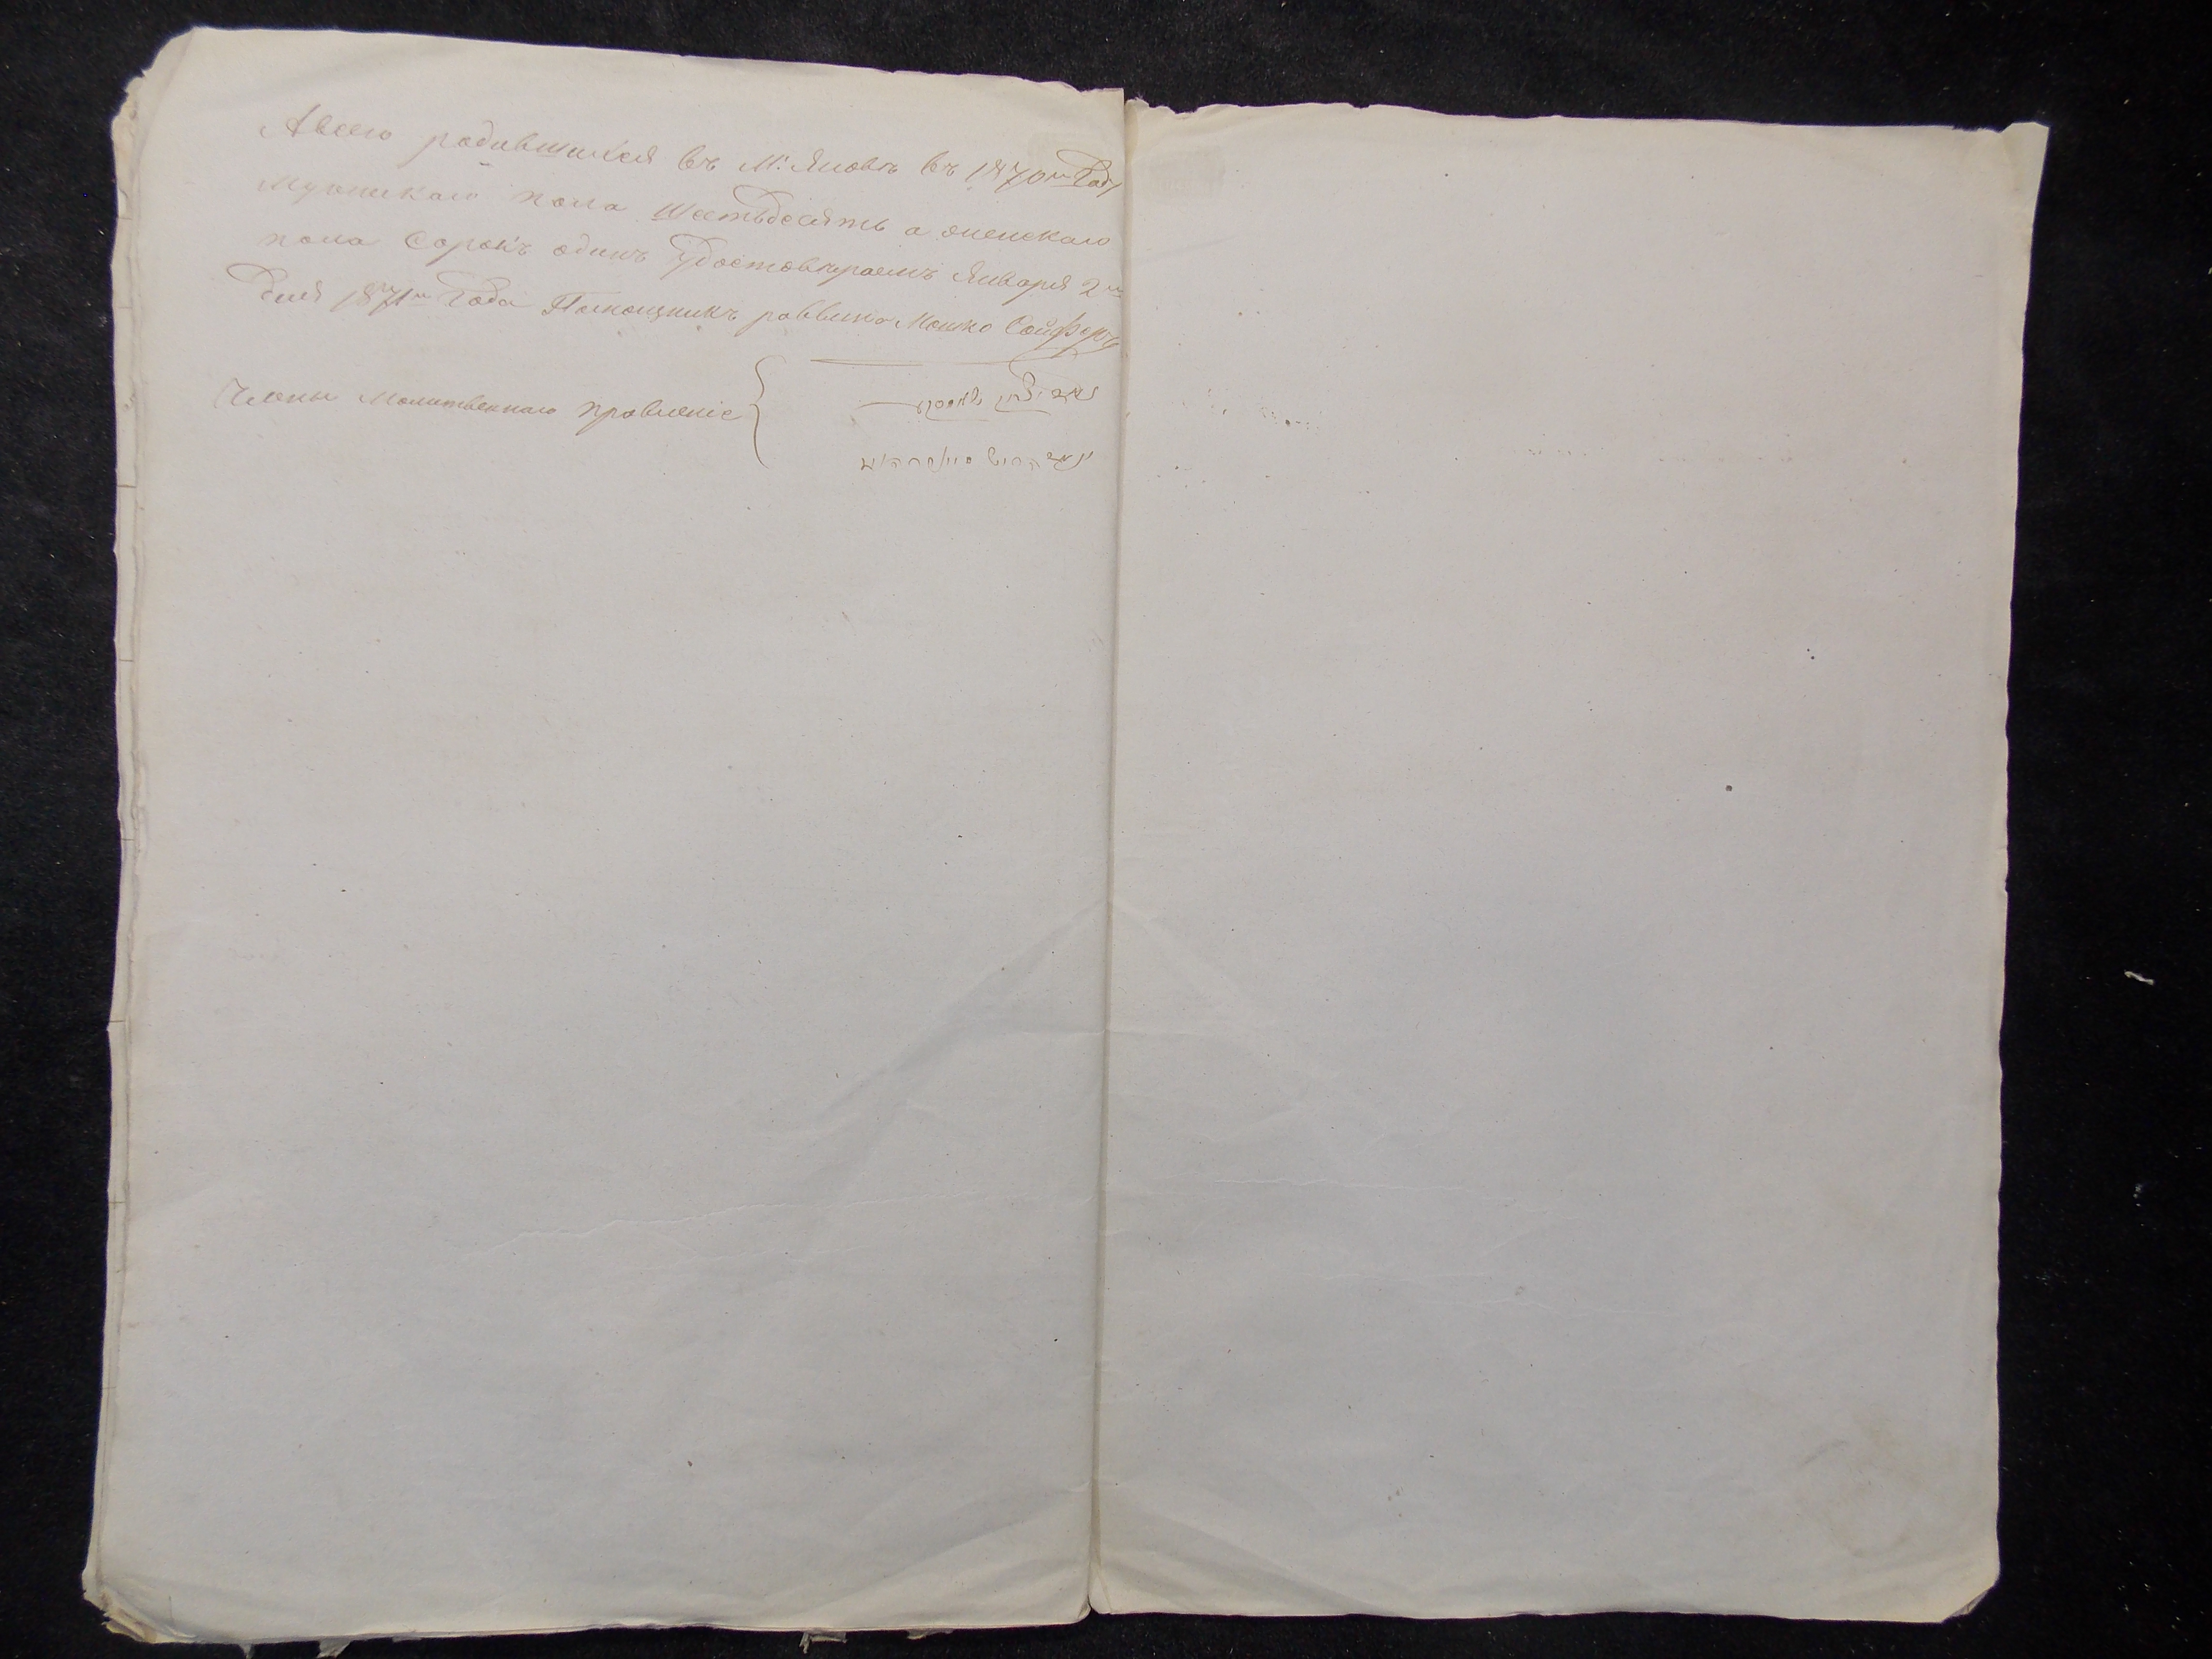 А всего родившихся въ М. Яновѣ въ 1870м Году
Мужескаго пола шестьдесять а женскаго
пола Сорокъ одинъ Удостовѣраемъ Января 2го
дня 1871го Года Помощникъ раввина Мошко
Члены Молитвеннаго правленіе